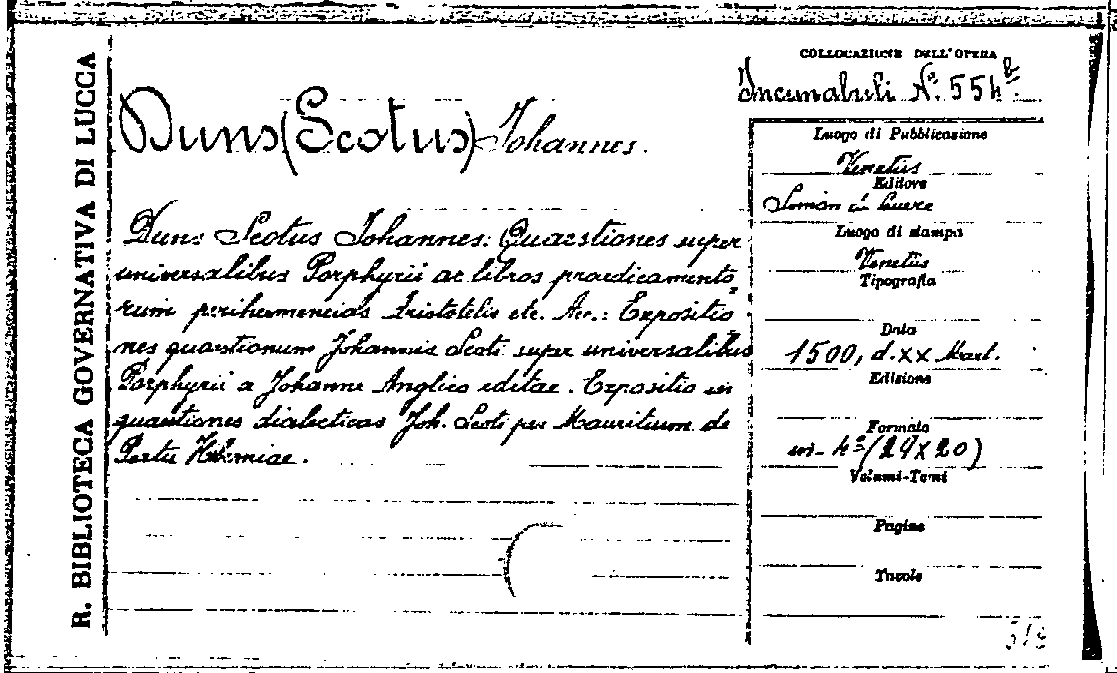 R. BIBLIOTECA GOVERNATIVA DI LUCCA
Duns (Scotus) Johannes.
Duns Scotus Johannes: Quaestiones super
universalibus Porphyrii ac libros praedicamento
rum perihermeneias Aristotelis etc. Acc.: Expositio
nes quaestionum Johannis Scoti super universalibus
Porphyrii a Johanne Anglico editae. Expositio in
quaestiones dialecticas Joh. Scoti per Mauritium de
Portu Hiberniae.
COLLOCAZIONE DELL'OPERA
Incunabuli N.º 554 b.
Luogo di Pubblicazione
Venetiis
Editore
Simon de Luere
Luogo di stampa
Venetiis
Tipografia
Data
1500, d. XX Mart.
Edizione
Formato
in-4º (29 X 20)
Volumi-Tomi
Pagine
Tavole